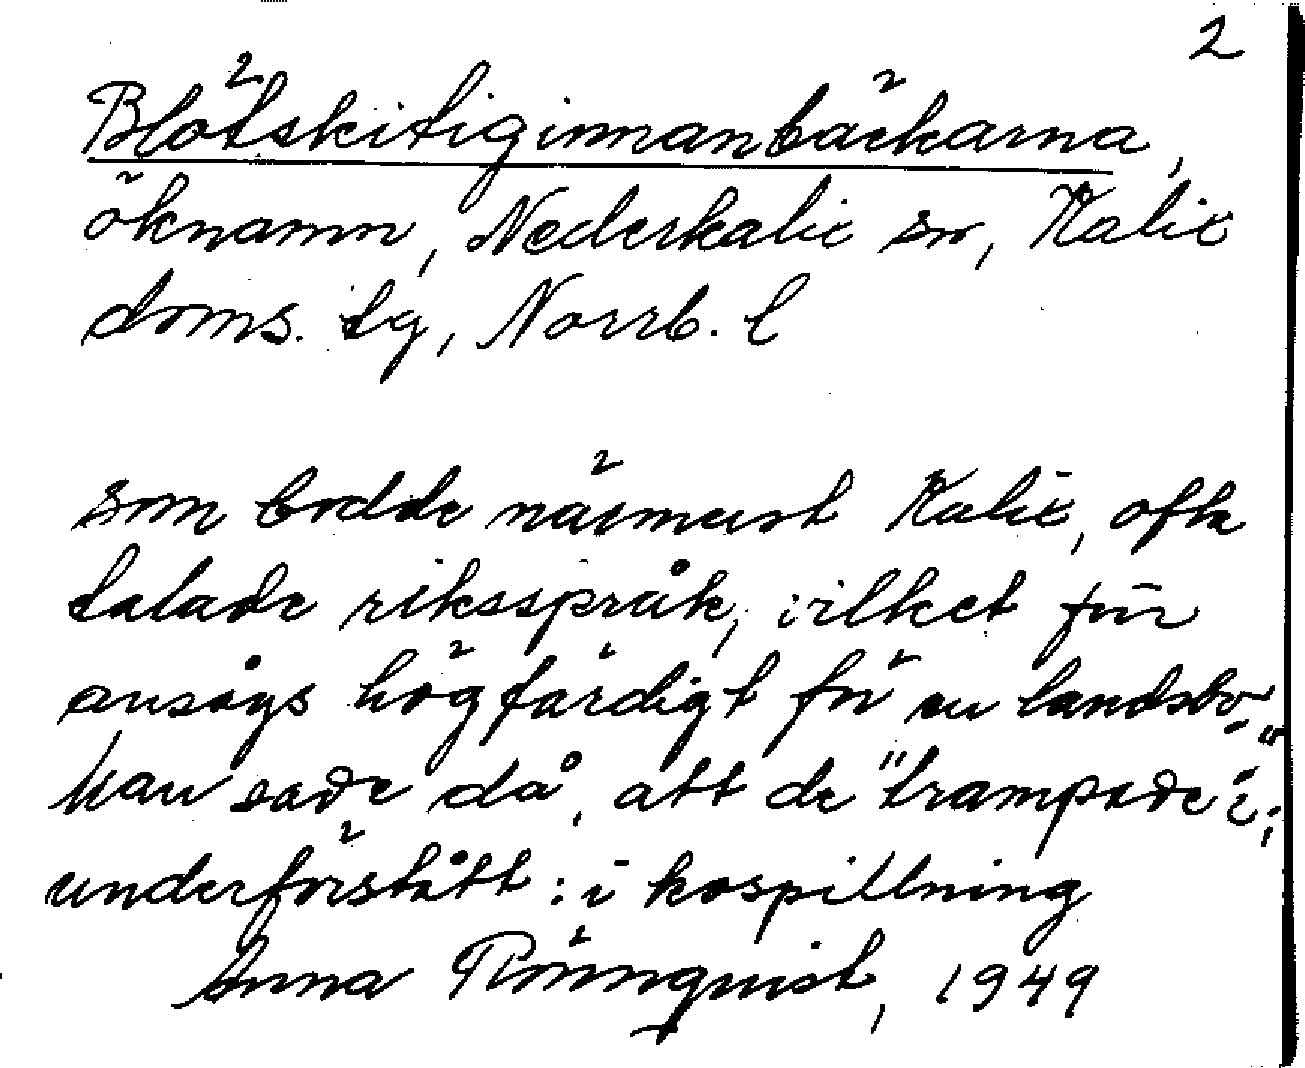 2
Blötskitiginnanbäckarna,
öknamn, Nederkalix sn, Kalix
doms. tg, Norrb. l
som bodde närmast Kalix, ofta
talade riksspråk, vilket för
ansågs högfärdigt för en landsbo.
Man sade då, att de "trampade i",
underförstått: i kospillning
Anna Rönnqvist, 1949